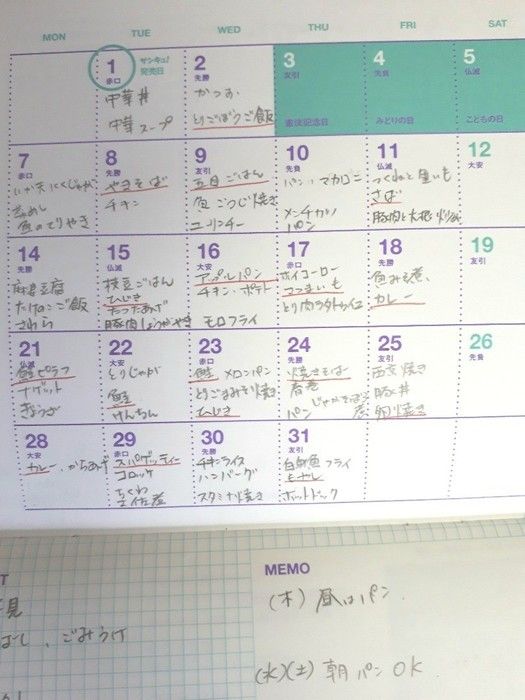 MON TUE WED THU FRI SAT
1 赤口 サンキュ!発売日
中華丼
中華スープ
2 先勝
かつお
とりごぼうご飯
3 友引
憲法記念日
4 先負
みどりの日
5 仏滅
こどもの日
7 赤口
魚のてりやき
8 先勝
やきそば
チキン
9 友引
五目ごはん
魚 こうじ焼き
ユーリンチー
10 先負
パン、マカロニ
メンチカツ
パン
11 仏滅
つくねと里いも
さば
豚肉と大根
12 大安
14 先勝
麻婆豆腐
たけのこご飯
さわら
15 仏滅
枝豆ごはん
ひじき
たつたあげ
豚肉しょうがやき
16 大安
アップルパン
チキン、ポテト
モロフライ
17 赤口
ホイコーロー
さつまいも
とり肉ラタトゥイユ
18 先勝
魚みそ煮
カレー
19 友引
21 仏滅
鮭ピラフ
ナゲット
ぎょうざ
22 大安
とりじゃが
鮭
けんちん
23 赤口
鮭 メロンパン
とりごまみそ焼き
ひじき
24 先勝
焼きそば
春巻
じゃがそぼろ煮
パン
25 友引
西京焼き
豚丼
卵焼き
26 先負
28 大安
カレー、からあげ
29 赤口
スパゲッティー
コロッケ
ちくわ
土佐煮
30 先勝
チキンライス
ハンバーグ
スタミナ焼き
31 友引
白身魚フライ
もやし
ホットドック
MEMO
(木) 昼はパン
見
ばし、ごみうけ
(水)(土) 朝パンOK